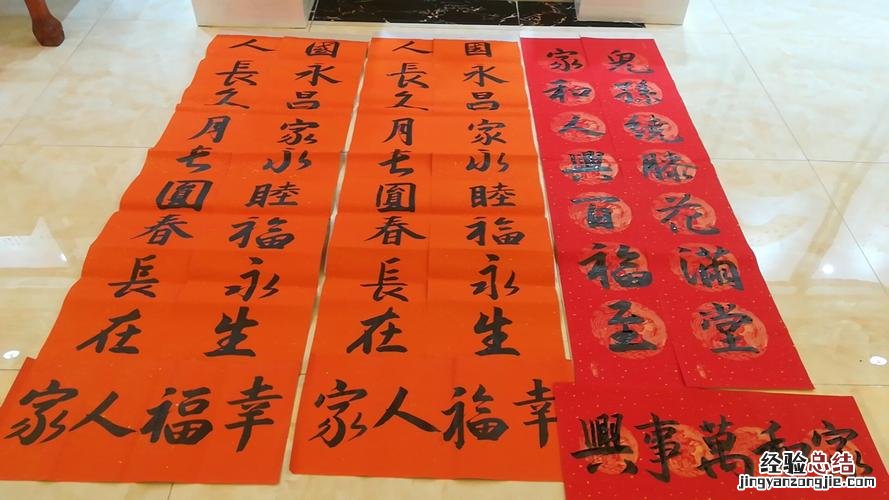 兒孫繞膝花滿堂
家和人興百福至
家和萬事興
國永昌家永睦福永生
人長久月長圓春長在
幸福人家
國永昌家永睦福永生
人長久月長圓春長在
幸福人家
经验总结
jingyanzongjie.com